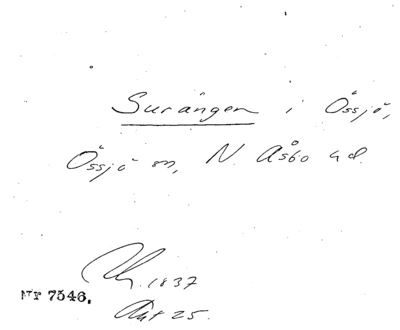 Surängen i Össjö,
Össjö sn, N. Åsbo hd.
1837
Akt 25.
Nr 7546.